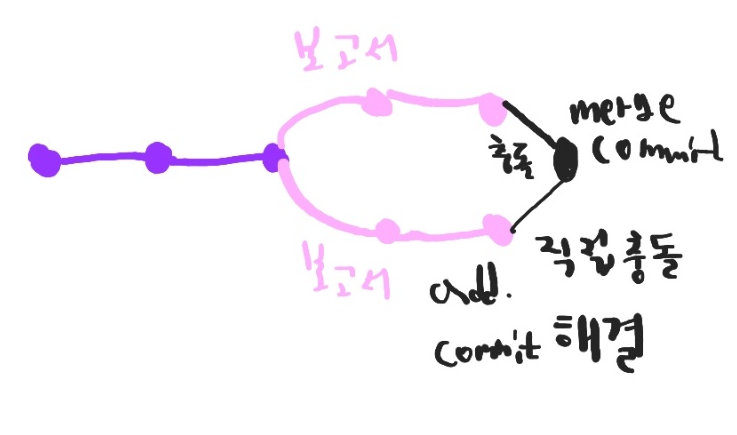 보고서
merge
commit
충돌
보고서
직접 충돌
add.
commit 해결